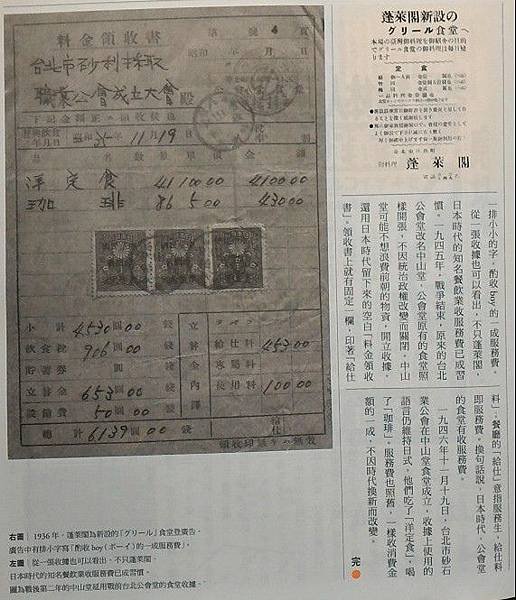 料金領收書
台北市砂利採取
職業公會成立大會 殿
昭和35年11月19日
品名 數量 單價 金額
洋定食 41 10000 410000
珈琲 86 500 43000
小計 4530圓00錢
飲食稅 906圓00錢
貯蓄券 圓 錢
立替金 653圓00錢
設備費 50圓00錢
總計 6139圓00錢
立替金內譯
給仕料 453 00
使用料 100 00
領收印無キハ無效
蓬萊閣新設の
グリール食堂へ
定食
御料理 蓬萊閣
一排小小的字,「酌收boy的一成服務費」。
從一張收據也可以看出,不只蓬萊閣,
日本時代的知名餐飲業收服務費已成習
慣。一九四五年,戰爭結束,原來的台北
公會堂改名中山堂,公會堂原有的食堂照
樣開張,不因統治政權改變而關閉。中山
堂可能不想浪費前朝的物資,開立收據,
還用日本時代留下來的空白「料金領收
書」。領收書上就有固定一欄,印著「給仕
料」;餐廳的「給仕」意指服務生,給仕料
即服務費。換句話說,日本時代,公會堂
的食堂有收服務費。
一九四六年十一月十九日,台北市砂石
業公會在中山堂食堂成立,收據上使用的
語言仍維持日式,他們吃了「洋定食」,喝
了「珈琲」。服務費也照舊,一樣收消費金
額的一成,不因時代換新而改變。
完
右圖│1936年,蓬萊閣為新設的「グリール」食堂登廣告,
廣告中有排小字寫「酌收boy(ボーイ)的一成服務費」。
左圖│從一張收據也可以看出,不只蓬萊閣,
日本時代的知名餐飲業收服務費已成習慣。
圖為戰後第二年的中山堂延用戰前台北公會堂的食堂收據。